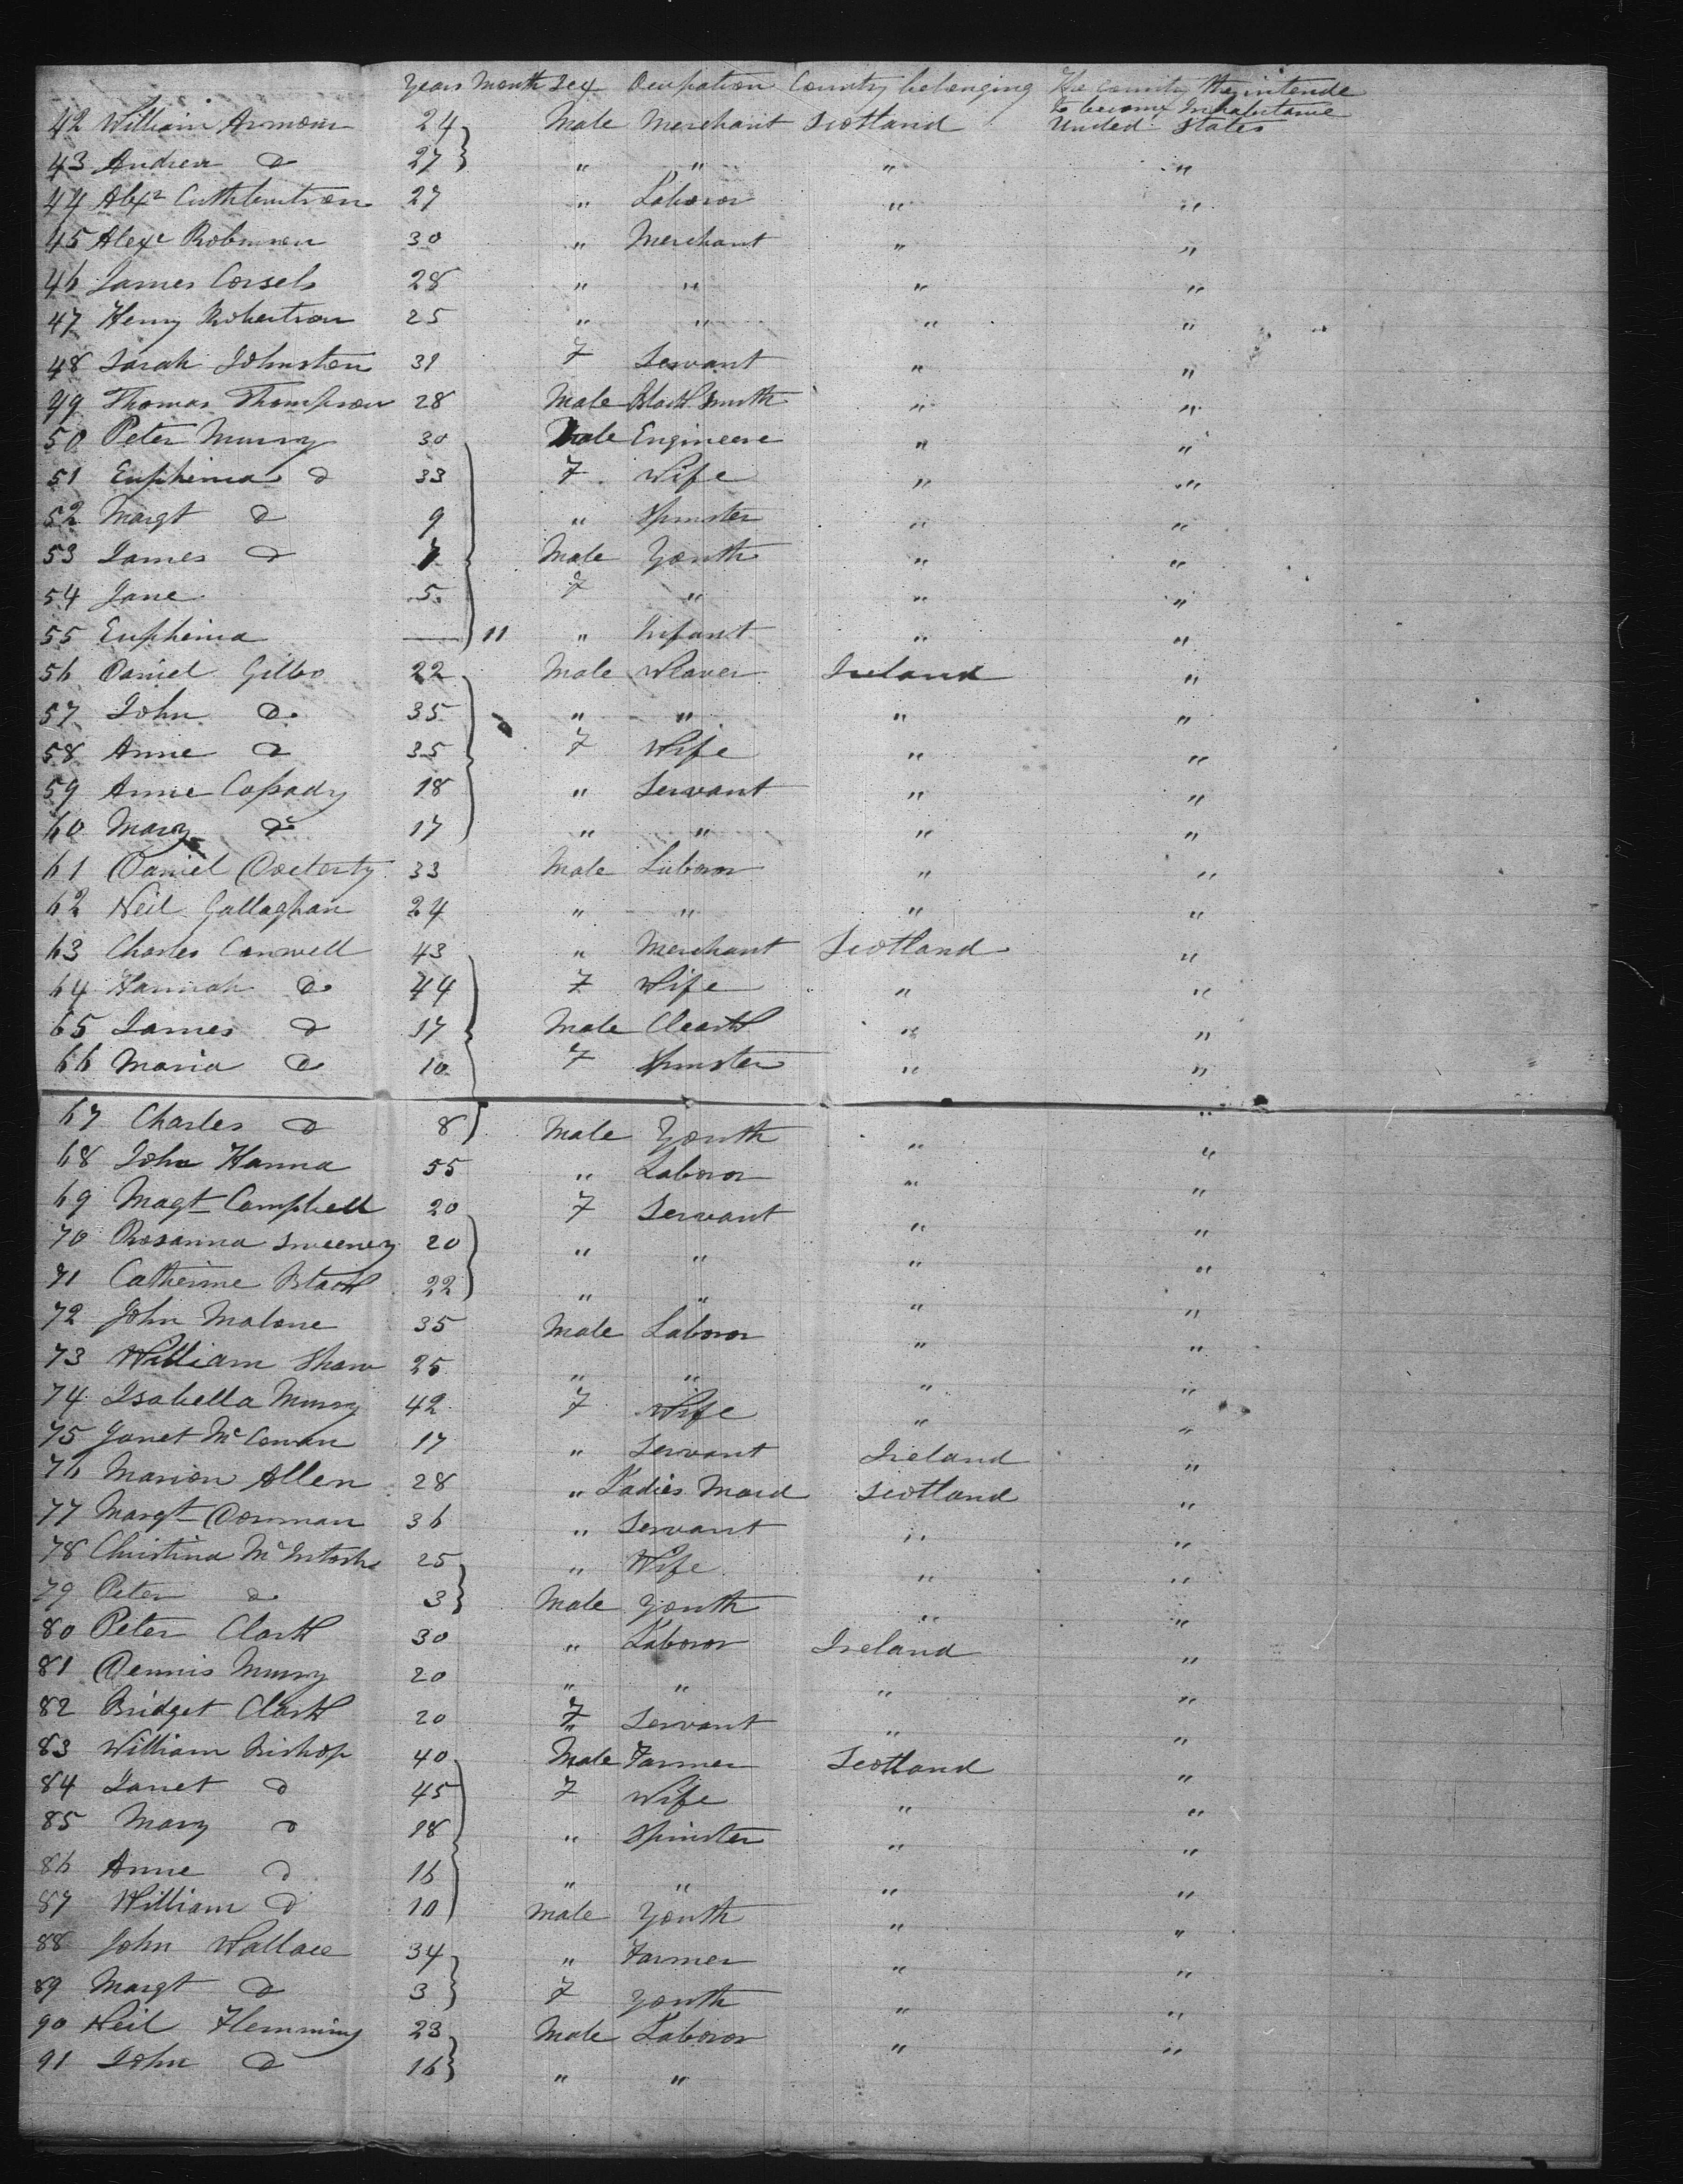 Years Month Sex Ocupation Country belonging The Country they intende to become Inhabitance
42 William Armour 24 Male Merchant Scotland United States
43 Andrew Do 27 " " " "
44 Alexr Cuthbertson 27 " Laboror " "
45 Alexr Robinson 30 " Merchant " "
46 James Corsels 28 " " " "
47 Henry Robertson 25 " " " "
48 Sarah Johnston 31 F Servant " "
49 Thomas Thompson 28 Male Black Smith " "
50 Peter Murry 30 Male Engineere " "
51 Euphimia Do 33 F Wife " "
52 Margt Do 9 " Spinster " "
53 James Do 7 Male Youth " "
54 Jane 5 F " " "
55 Euphimia — 11 " Infant " "
56 Daniel 22 Male Weaver Ireland "
57 John Do 35 " " " "
58 Anne Do 35 F Wife " "
59 Annie Cassady 18 " Servant " "
60 Mary Do 17 " " " "
61 Daniel Docterty 33 Male Laboror " "
62 Neil Gallaghan 24 " " " "
63 Charles Conwell 43 " Merchant Scotland "
64 Hannah Do 44 F Wife " "
65 James Do 17 Male Cleark " "
66 Maria Do 10 F Spinster " "
67 Charles Do 8 Male Youth " "
68 John Hanna 55 " Laboror " "
69 Magt Campbell 20 F Servant " "
70 Rosanna Sweeney 20 " " " "
71 Catherine Black 22 " " " "
72 John Malone 35 Male Laboror " "
73 William Shaw 25 " " " "
74 Isabella Murry 42 F Wife " "
75 Janet McCowan 17 " Servant Ireland "
76 Marion Allen 28 " Ladies Maid Scotland "
77 Margt Dorman 36 " Servant " "
78 Christina McIntosh 25 " Wife " "
79 Peter Do 3 Male Youth " "
80 Peter Clark 30 " Laboror Ireland "
81 Dennis Murry 20 " " " "
82 Bridget Clark 20 F Servant " "
83 William Bishop 40 Male Farmer Scotland "
84 Janet Do 45 F Wife " "
85 Mary Do 18 " Spinster " "
86 Anne Do 16 " " " "
87 William Do 10 Male Youth " "
88 John Wallace 34 " Farmer " "
89 Margt Do 3 F Youth " "
90 Neil Flemming 23 Male Laboror " "
91 John Do 16 " "